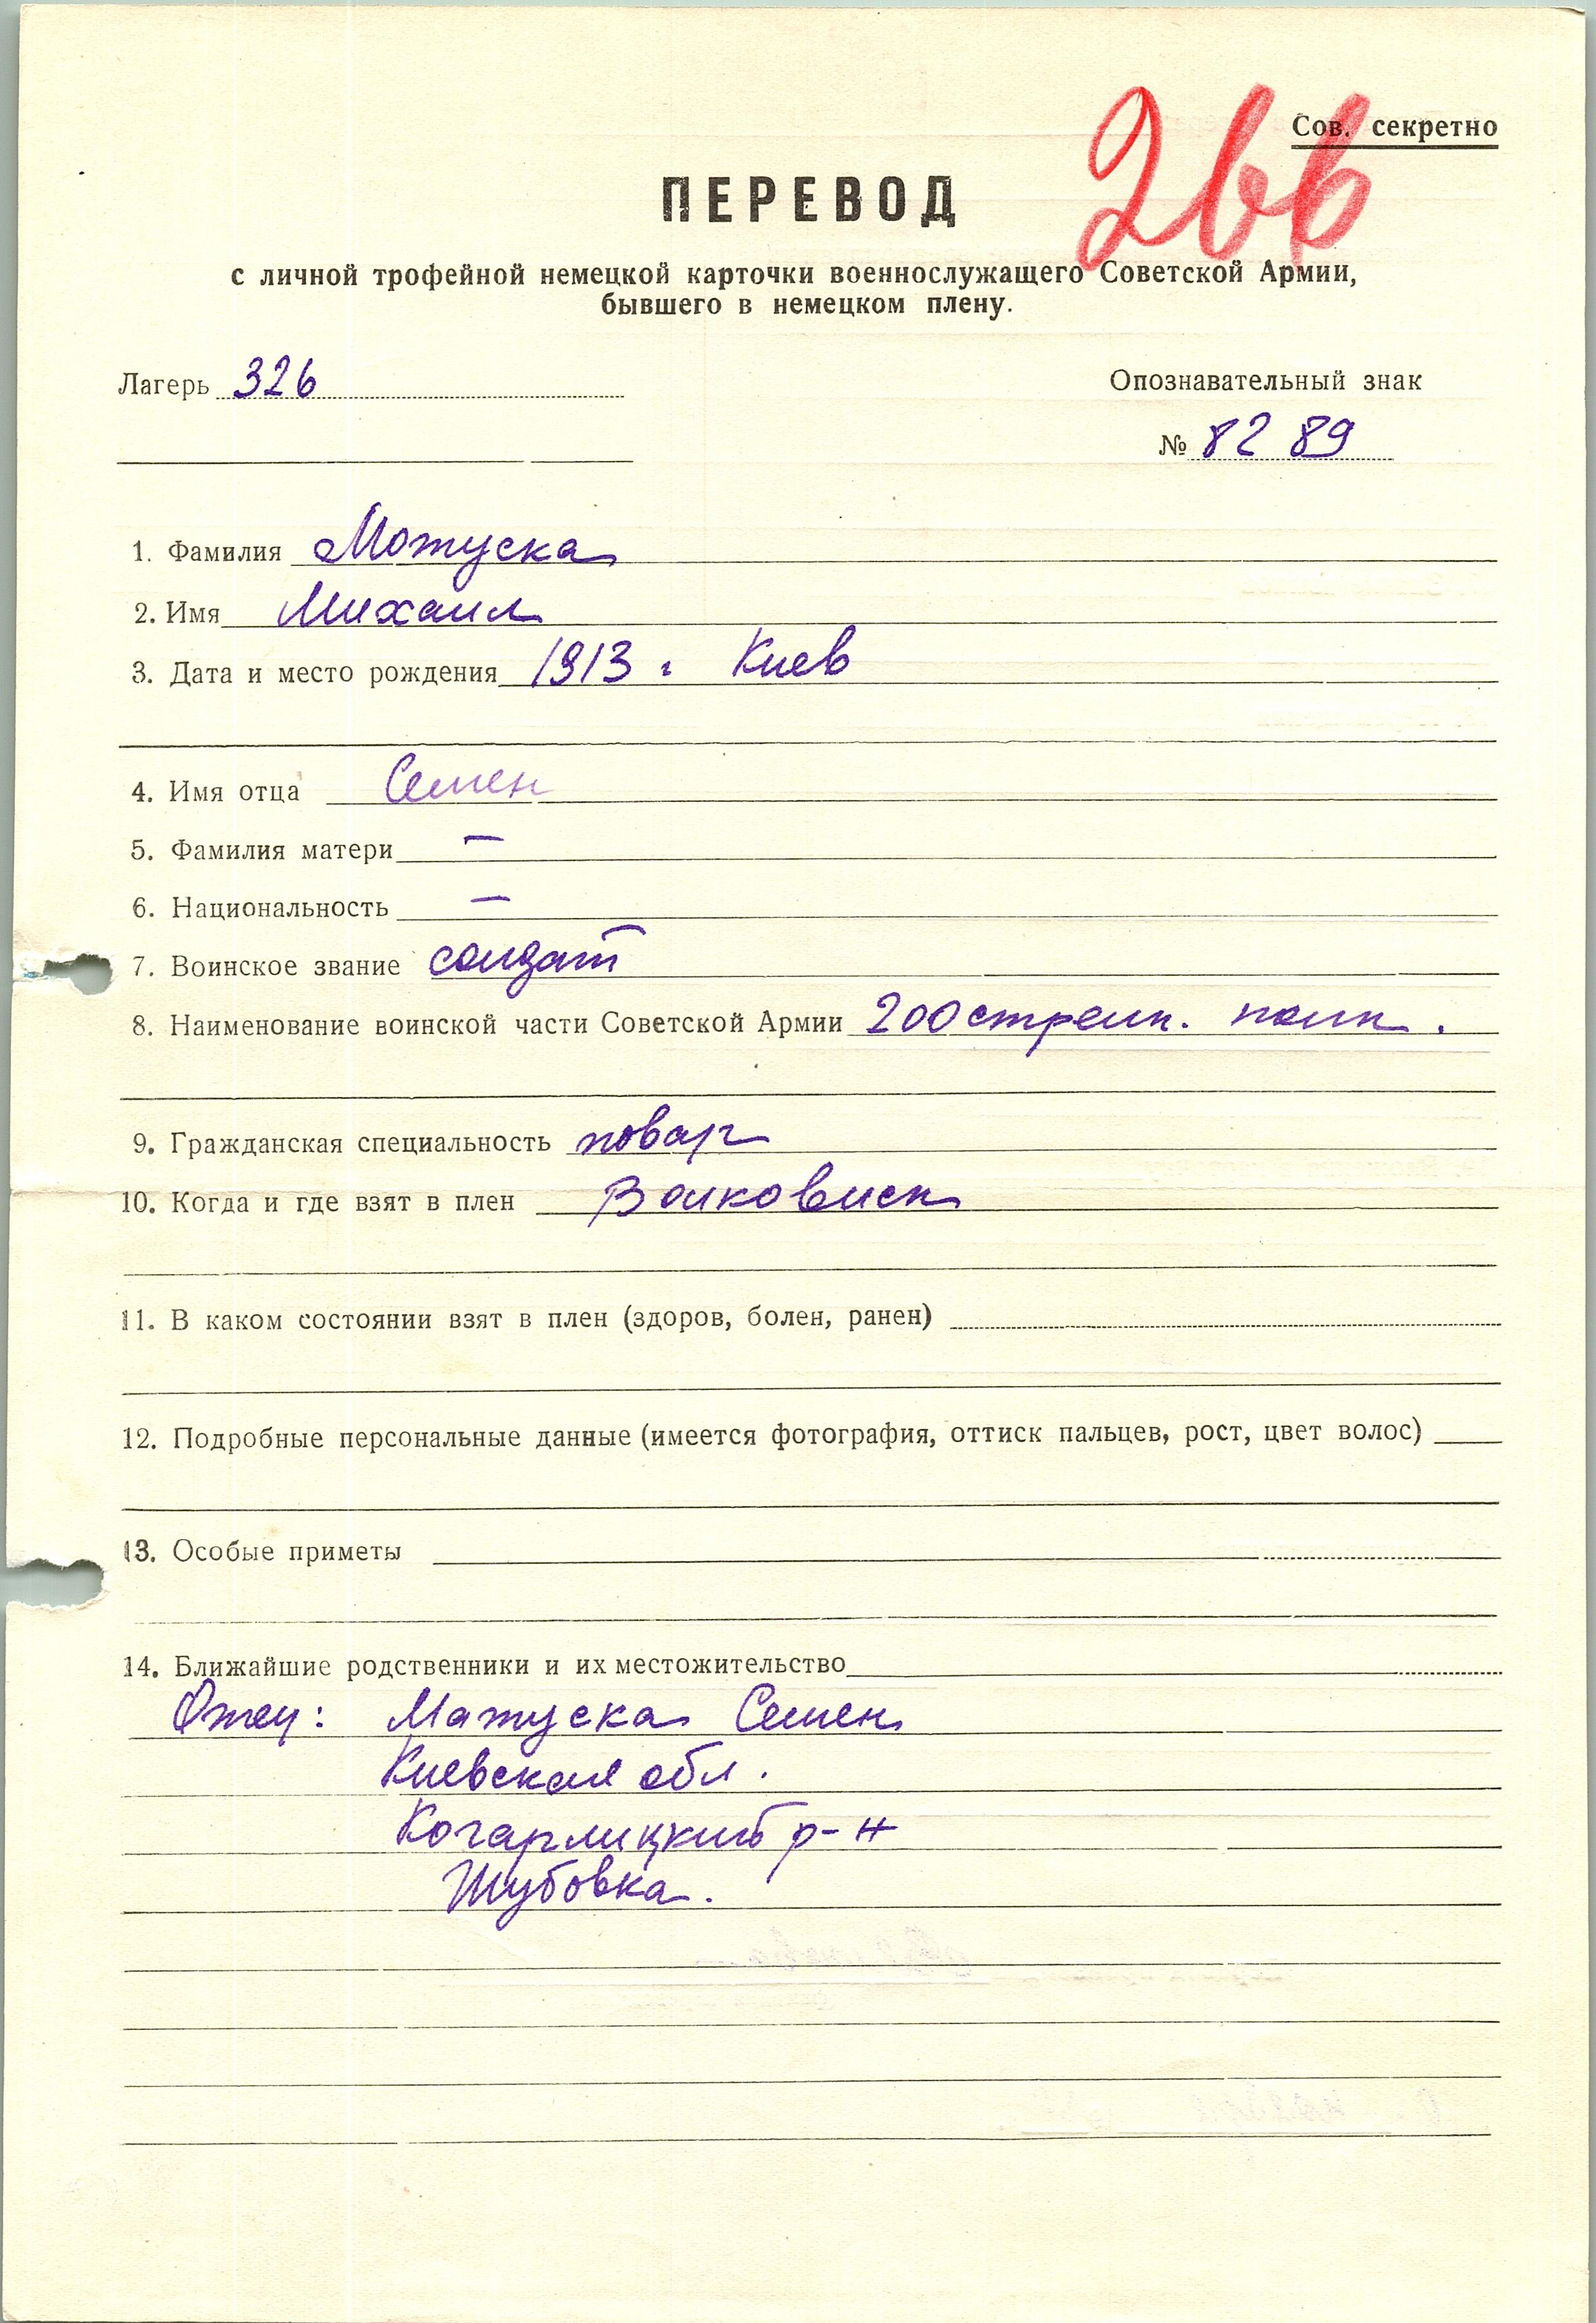 Сов. секретно
266
ПЕРЕВОД
с личной трофейной немецкой карточки военнослужащего Советской Армии,
бывшего в немецком плену.
Лагерь 326
Опознавательный знак
№ 82 89
1. Фамилия Мотуска
2. Имя Михаил
3. Дата и место рождения 1913 г Киев
4. Имя отца Семен
5. Фамилия матери —
6. Национальность —
7. Воинское звание солдат
8. Наименование воинской части Советской Армии 200 стрелк. полк.
9. Гражданская специальность повар
10. Когда и где взят в плен Волковиск
11. В каком состоянии взят в плен (здоров, болен, ранен)
12. Подробные персональные данные (имеется фотография, оттиск пальцев, рост, цвет волос)
13. Особые приметы
14. Ближайшие родственники и их местожительство
Отец: Матуска Семен
Киевская обл.
Когарлицкий р-н
Шубовка.